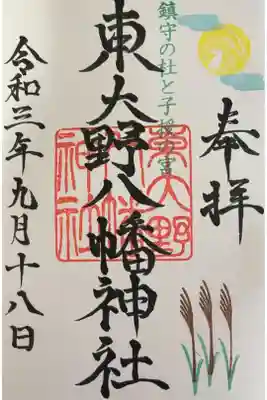 奉拝
鎮守の杜と子授の宮
東大野八幡神社
東大野八幡神社
令和三年九月十八日